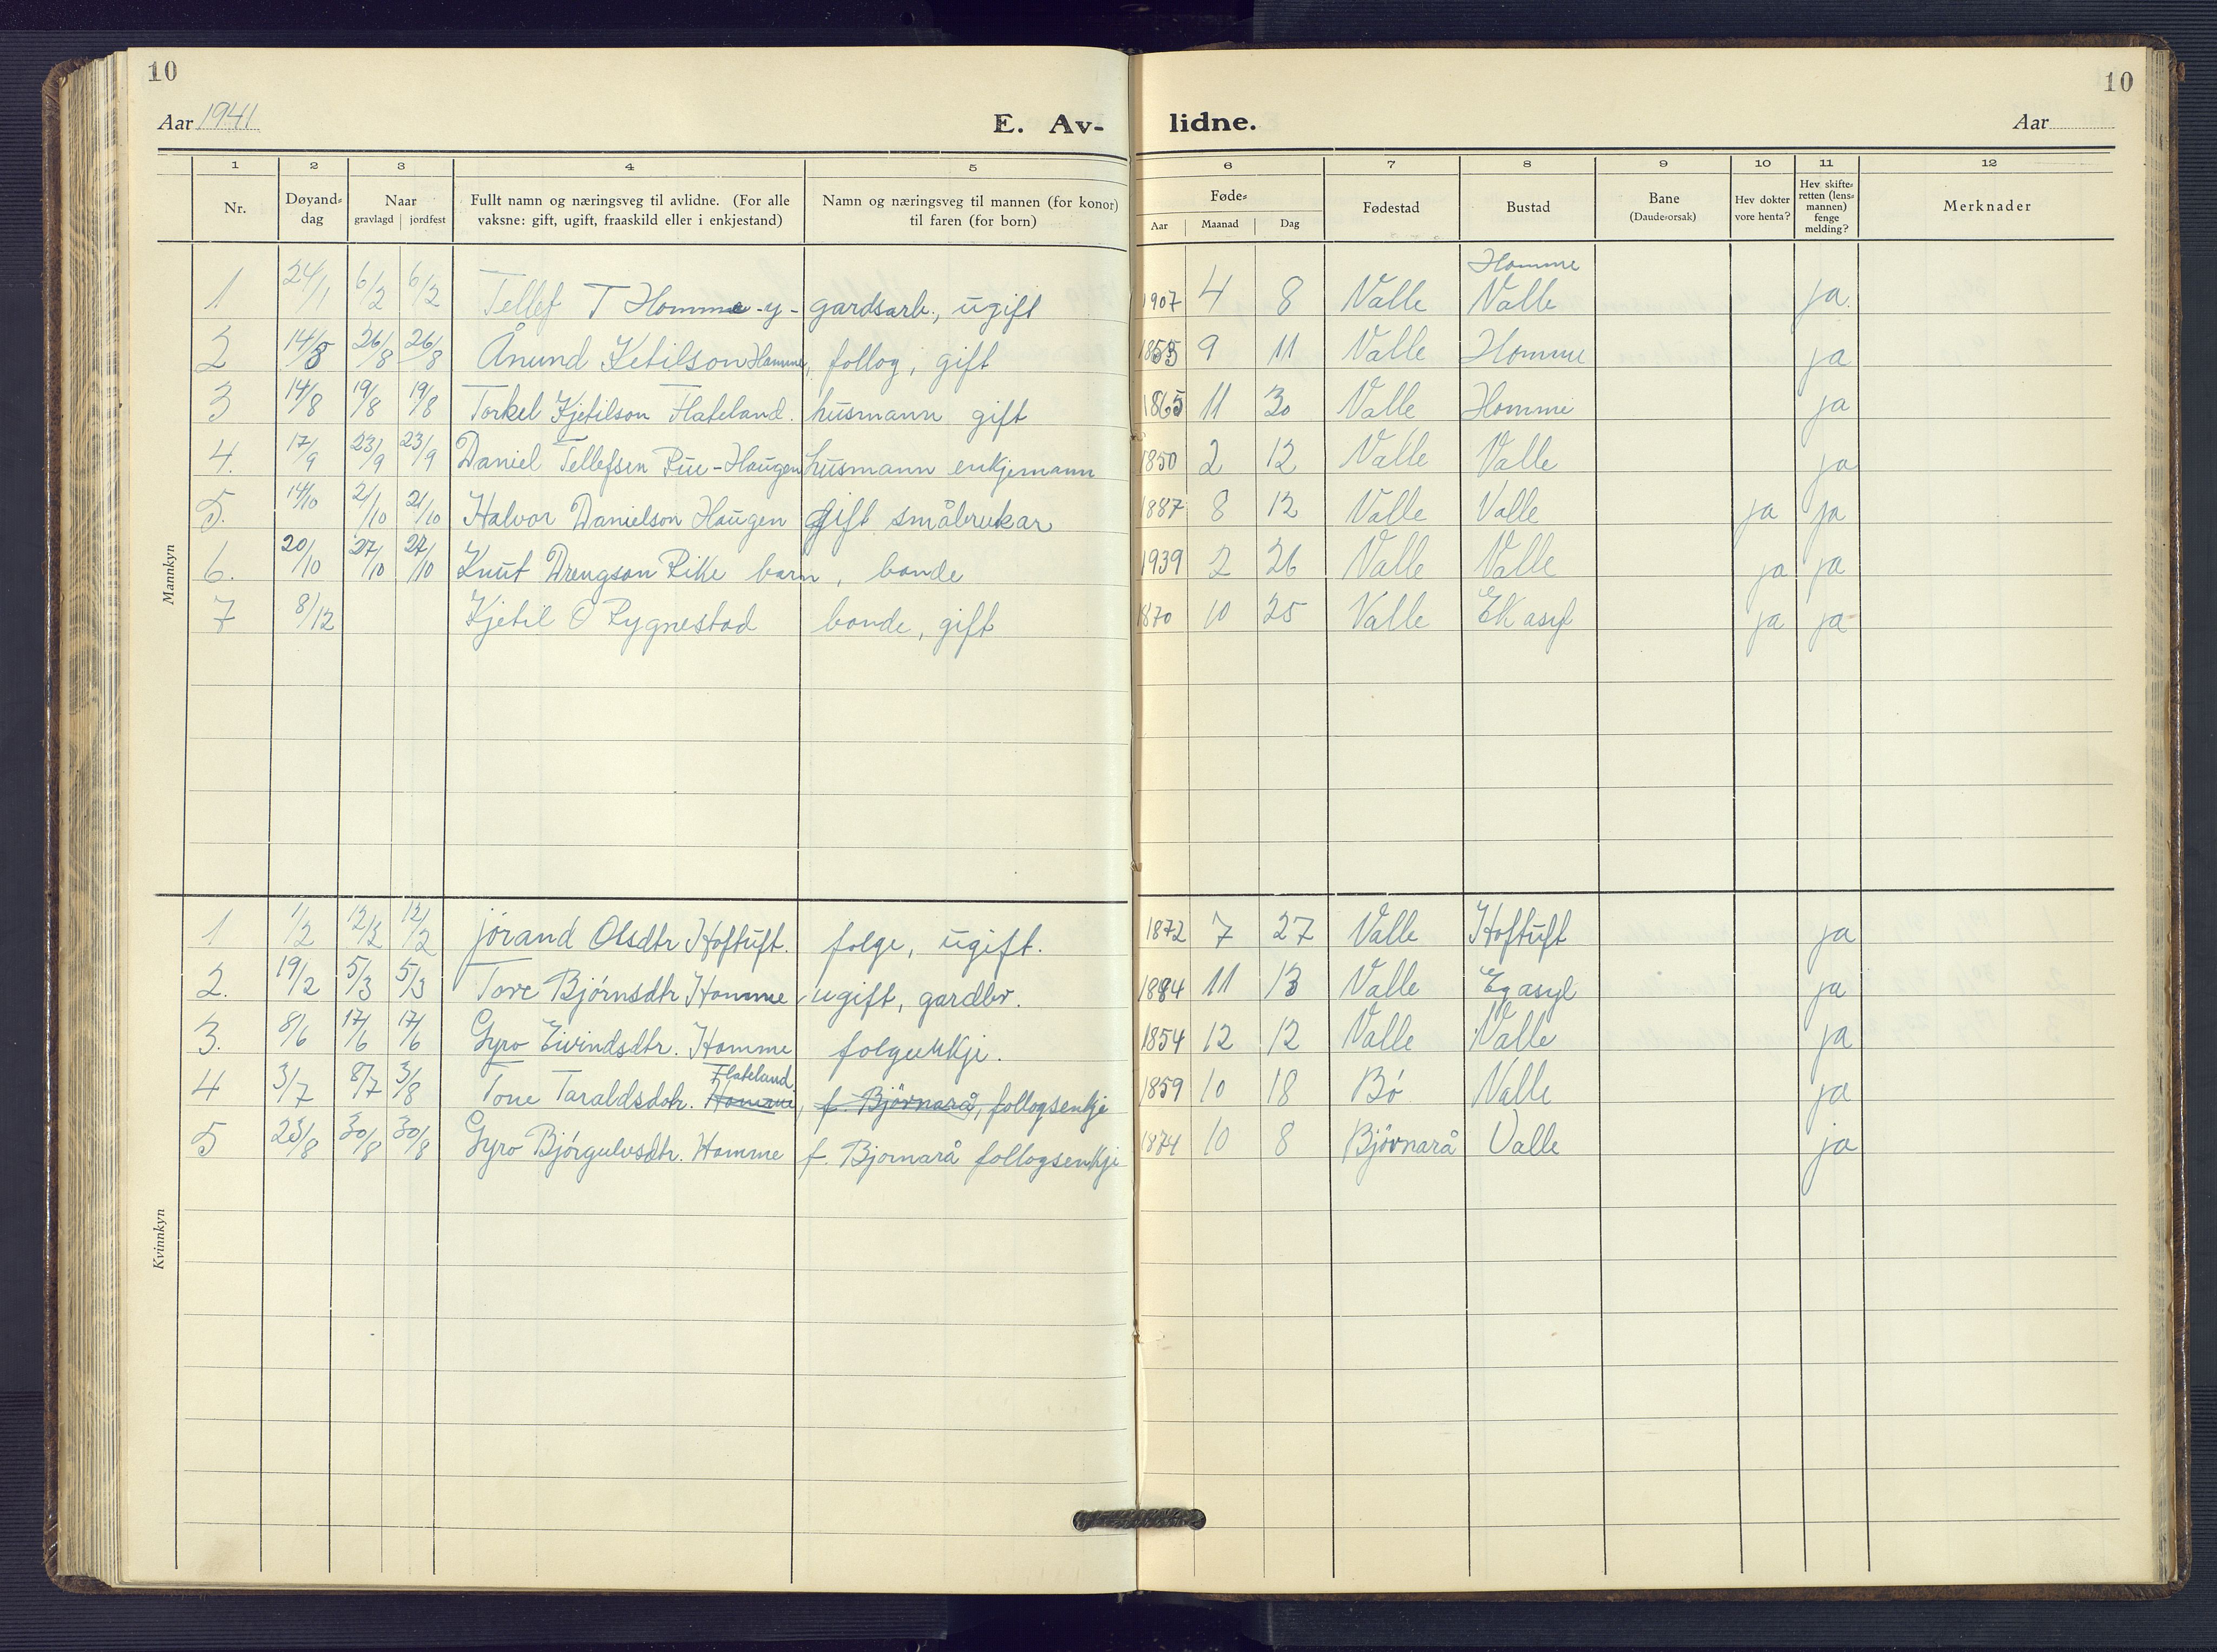 10
10
Aar 1941
E. Av-
lidne.
Aar
1 2 3 4 5 6 7 8 9 10 11 12
Nr. Døyand-dag Naar gravlagd jordfest Fullt namn og næringsveg til avlidne. (For alle vaksne: gift, ugift, fraaskild eller i enkjestand) Namn og næringsveg til mannen (for konor) til faren (for born) Føde- Aar Maanad Dag Fødestad Bustad Bane (Daude-orsak) Hev dokter vore henta? Hev skifte-retten (lens-mannen) fenge melding? Merknader
Mannkyn
Homme
1 24/1 6/2 6/2 Tellef T Homme -y- gardsarb., ugift 1907 4 8 Valle Valle ja.
2 14/8 26/8 26/8 Ånund Ketilson Homme, follog, gift 9 11 Valle Homme ja
3 14/8 19/8 19/8 Torkel Kjetilson Flateland. husmann gift 1865 11 30 Valle Homme ja
4. 17/9 23/9 23/9 Daniel Tellefsen Rue-Haugen husmann enkjemann 1850 2 12 Valle Valle ja
5. 14/10 21/10 21/10 Halvor Danielson Haugen Gift småbrukar 1887 8 12 Valle Valle ja ja
6. 20/10 27/10 27/10 Knut Drengson Rike barn, bonde 1939 2 26 Valle Valle ja ja
7 8/12 Kjetil O Rygnestad bonde, gift 1870 10 25 Valle Ek asyl ja ja
Kvinnkyn
1 1/2 12/2 12/2 Jørand Olsdtr Hoftuft. folge, ugift. 1872 7 27 Valle Hoftuft ja
2. 19/2 5/3 5/3 Tore Bjørnsdtr Homme, ugift, gardbr. 1884 11 13 Valle Eg asyl ja
3. 8/6 17/6 17/6 Gyro Eivindsdtr. Homme folgeenkje. 1854 12 12 Valle Valle ja
Flateland
4 3/7 8/7 3/8 Tone Taraldsdotr. Homme, f. Bjørnarå, follogsenkje 1859 10 18 Bø Valle ja
5 23/8 30/8 30/8 Gyro Bjørgulvsdtr. Homme f. Bjørnarå follogsenkje 1874 10 8 Bjørnarå Valle ja